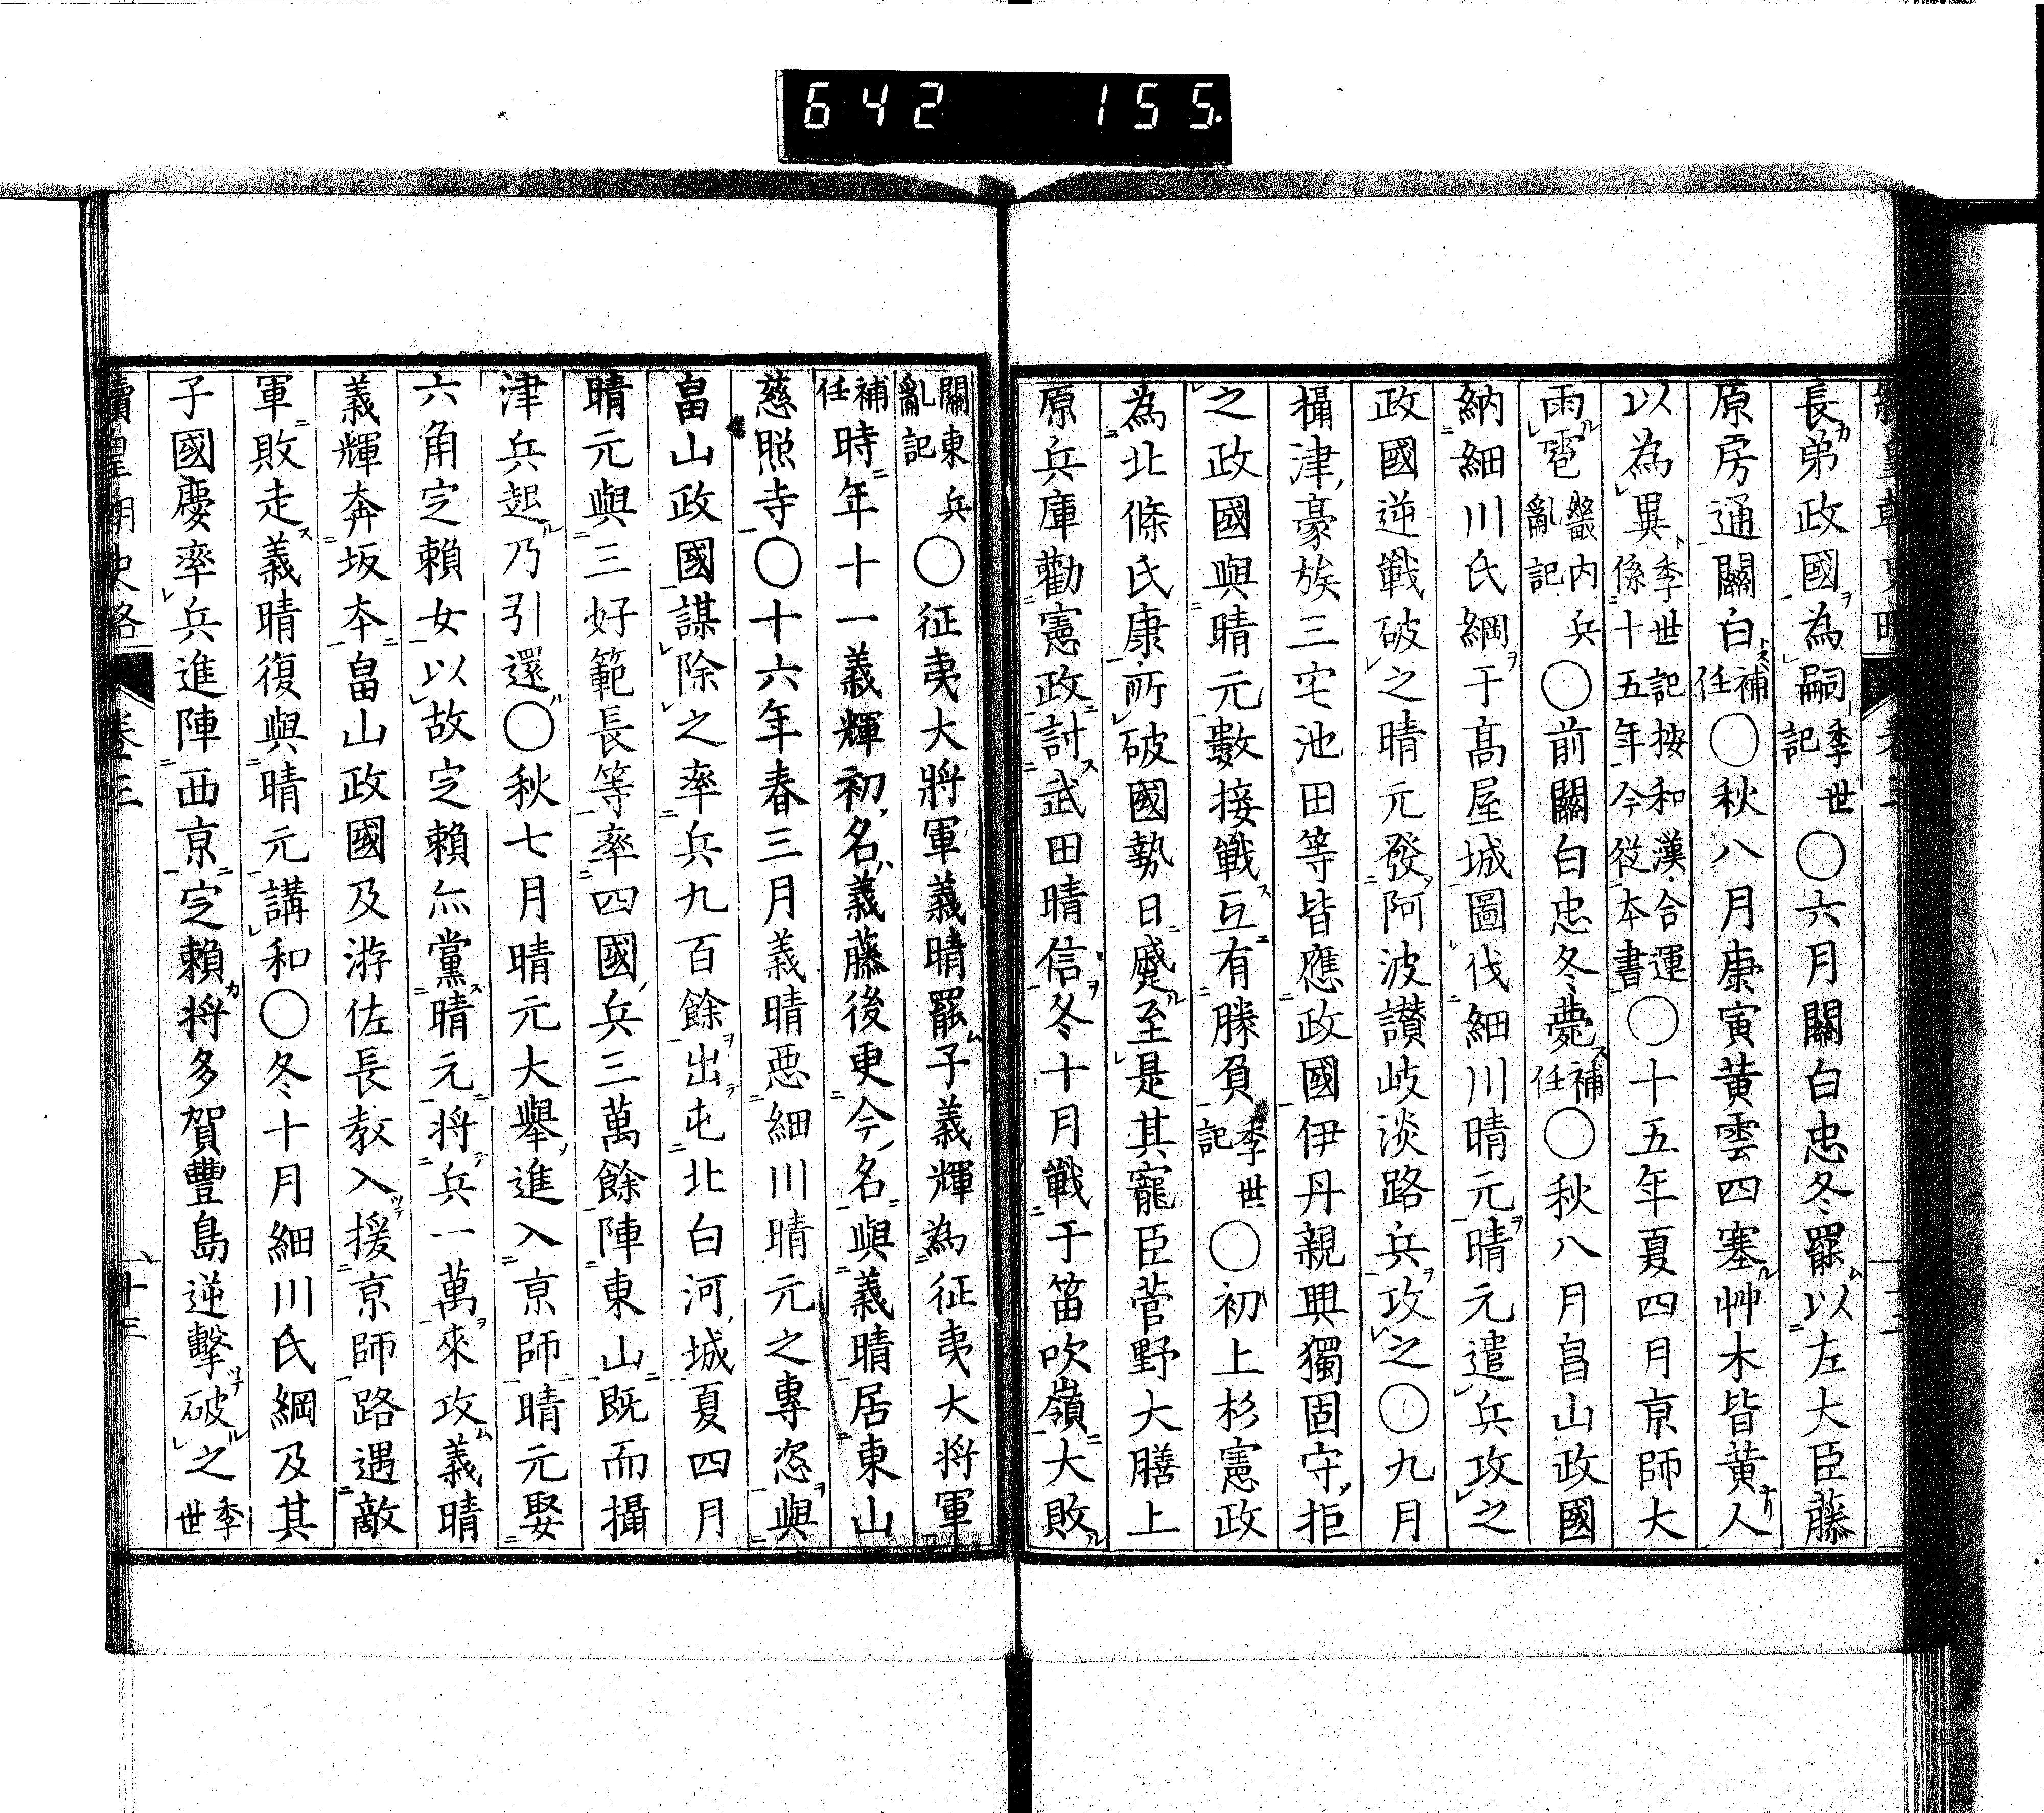 642 155.
長弟政國為嗣季世記〇六月關白忠冬罷以左大臣藤
原房通關白補任〇秋八月康寅黃雲四塞艸木皆黃人
以為異季世記按和漢合運係十五年今從本書〇十五年夏四月京師大
雨雹畿内兵亂記〇前關白忠冬薨補任〇秋八月畠山政國
納細川氏綱于髙屋城圖伐細川晴元晴元遣兵攻之
政國逆戰破之晴元發阿波讃岐淡路兵攻之〇九月
攝津豪族三宅池田等皆應政國伊丹親興獨固守拒
之政國與晴元數接戰互有勝負季世記〇初上杉憲政
為北條氏康所破國勢日蹙至是其寵臣菅野大膳上
原兵庫勸憲政討武田晴信冬十月戰于笛吹嶺大敗
關東兵亂記〇征夷大將軍義晴罷子義輝為征夷大將軍
補任時年十一義輝初名義藤後更今名與義晴居東山
慈照寺〇十六年春三月義晴惡細川晴元之專恣與
畠山政國謀除之率兵九百餘出屯北白河城夏四月
晴元與三好範長等率四國兵三萬餘陣東山既而攝
津兵起乃引還〇秋七月晴元大舉進入京師晴元娶
六角定賴女以故定賴亦黨晴元將兵一萬來攻義晴
義輝奔坂本畠山政國及游佐長教入援京師路遇敵
軍敗走義晴復與晴元講和〇冬十月細川氏綱及其
子國慶率兵進陣西京定賴將多賀豐島逆擊破之季世
續皇朝史略 卷三 十三